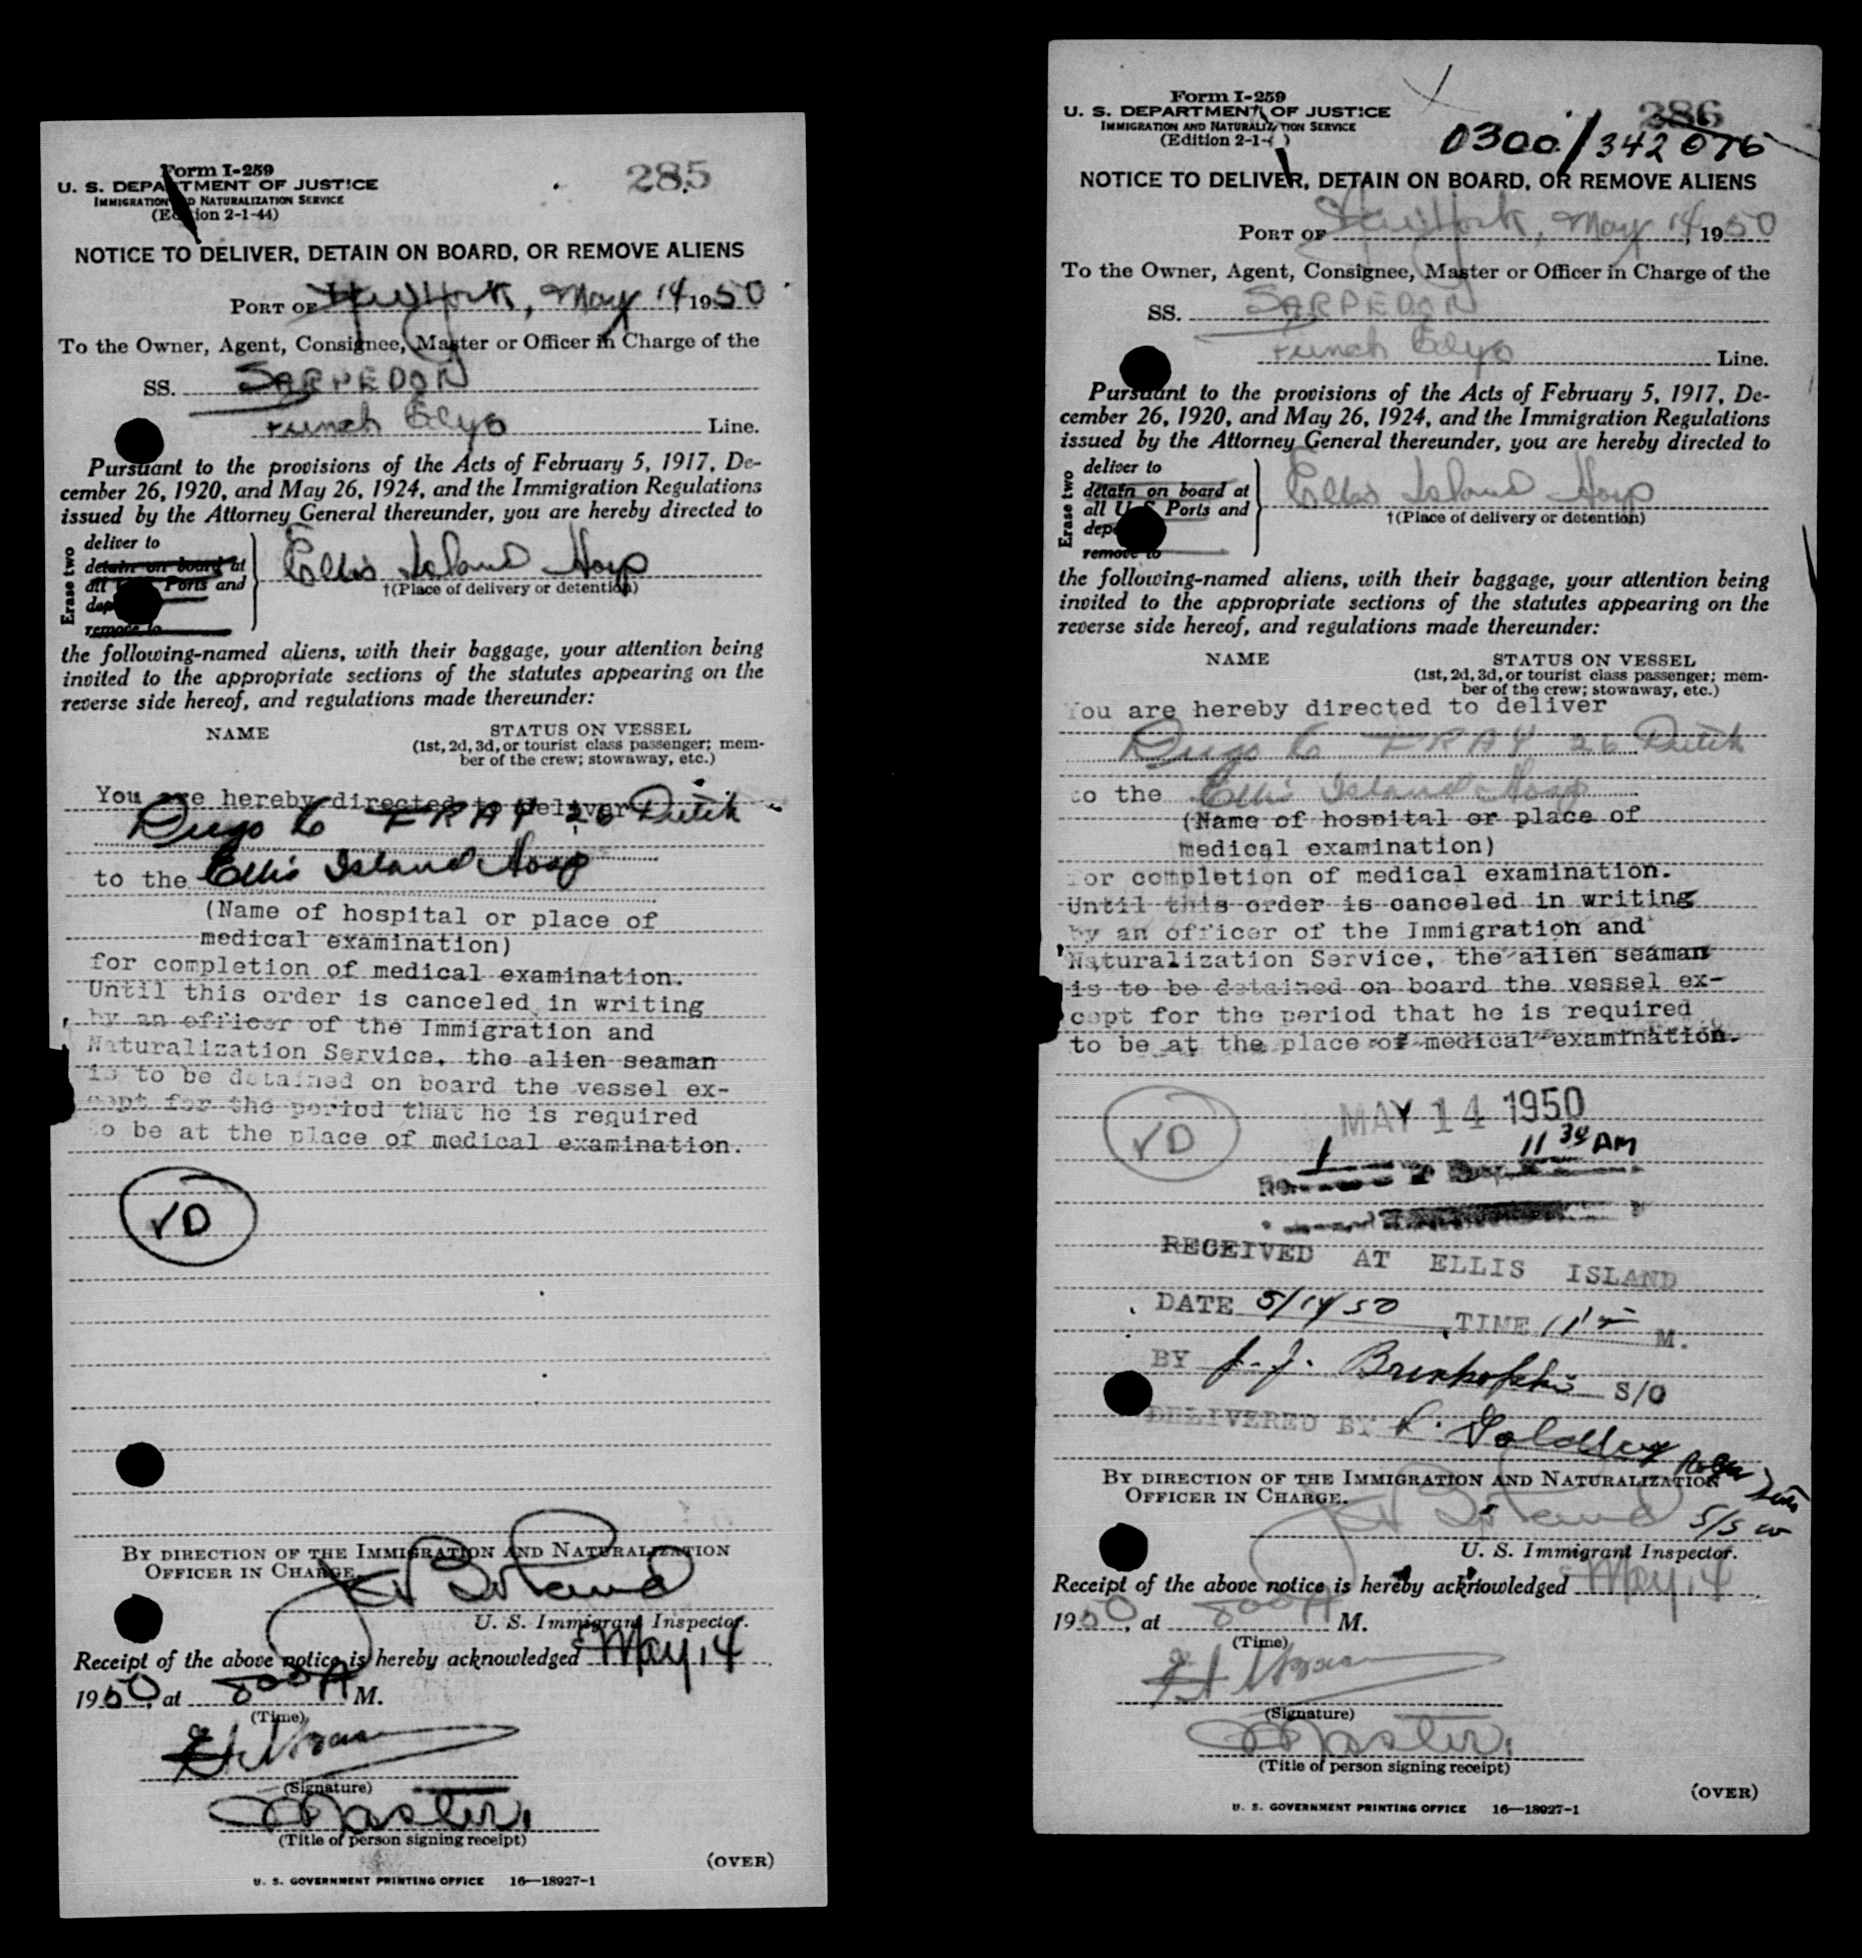 Form I-259
U. S. DEPARTMENT OF JUSTICE
IMMIGRATION AND NATURALIZATION SERVICE
(Edition 2-1-44)
285
NOTICE TO DELIVER, DETAIN ON BOARD, OR REMOVE ALIENS
PORT OF New York, May 14 1950
To the Owner, Agent, Consignee, Master or Officer in Charge of the
SS. SARPEDON
Funch Edye Line.
Pursuant to the provisions of the Acts of February 5, 1917, De-
cember 26, 1920, and May 26, 1924, and the Immigration Regulations
issued by the Attorney General thereunder, you are hereby directed to
Erase two
deliver to
detain on board at
all Ports and
remove to
Ellis Island Hosp
†(Place of delivery or detention)
the following-named aliens, with their baggage, your attention being
invited to the appropriate sections of the statutes appearing on the
reverse side hereof, and regulations made thereunder:
NAME STATUS ON VESSEL
(1st, 2d, 3d, or tourist class passenger; mem-
ber of the crew; stowaway, etc.)
You are hereby directed to deliver
FRAY 26 Dutch
to the Ellis Island Hosp
(Name of hospital or place of
medical examination)
for completion of medical examination.
Until this order is canceled in writing
by an officer of the Immigration and
Naturalization Service, the alien seaman
is to be detained on board the vessel ex-
cept for the period that he is required
to be at the place of medical examination.
VD
BY DIRECTION OF THE IMMIGRATION AND NATURALIZATION
OFFICER IN CHARGE.
U. S. Immigrant Inspector.
Receipt of the above notice is hereby acknowledged May 14
1950, at 800 A M.
(Time)
(Signature)
Master
(Title of person signing receipt)
(OVER)
U. S. GOVERNMENT PRINTING OFFICE 16—18927-1
Form I-259
U. S. DEPARTMENT OF JUSTICE
IMMIGRATION AND NATURALIZATION SERVICE
(Edition 2-1- )
286
0300/342076
NOTICE TO DELIVER, DETAIN ON BOARD, OR REMOVE ALIENS
PORT OF New York, May 14, 1950
To the Owner, Agent, Consignee, Master or Officer in Charge of the
SS. SARPEDON
Funch Edye Line.
Pursuant to the provisions of the Acts of February 5, 1917, De-
cember 26, 1920, and May 26, 1924, and the Immigration Regulations
issued by the Attorney General thereunder, you are hereby directed to
Erase two
deliver to
detain on board at
all U S Ports and
remove to
Ellis Island Hosp
†(Place of delivery or detention)
the following-named aliens, with their baggage, your attention being
invited to the appropriate sections of the statutes appearing on the
reverse side hereof, and regulations made thereunder:
NAME STATUS ON VESSEL
(1st, 2d, 3d, or tourist class passenger; mem-
ber of the crew; stowaway, etc.)
You are hereby directed to deliver
FRAY 26 Dutch
to the Ellis Island Hosp
(Name of hospital or place of
medical examination)
for completion of medical examination.
Until this order is canceled in writing
by an officer of the Immigration and
Naturalization Service, the alien seaman
is to be detained on board the vessel ex-
cept for the period that he is required
to be at the place of medical examination.
VD
MAY 14 1950
1 11 34 AM
RECEIVED AT ELLIS ISLAND
DATE 5/14/50 TIME M.
BY J. J. S/O
DELIVERED BY
BY DIRECTION OF THE IMMIGRATION AND NATURALIZATION
OFFICER IN CHARGE.
U. S. Immigrant Inspector.
Receipt of the above notice is hereby acknowledged May 14
1950, at 800 A M.
(Time)
(Signature)
Master
(Title of person signing receipt)
(OVER)
U. S. GOVERNMENT PRINTING OFFICE 16—18927-1